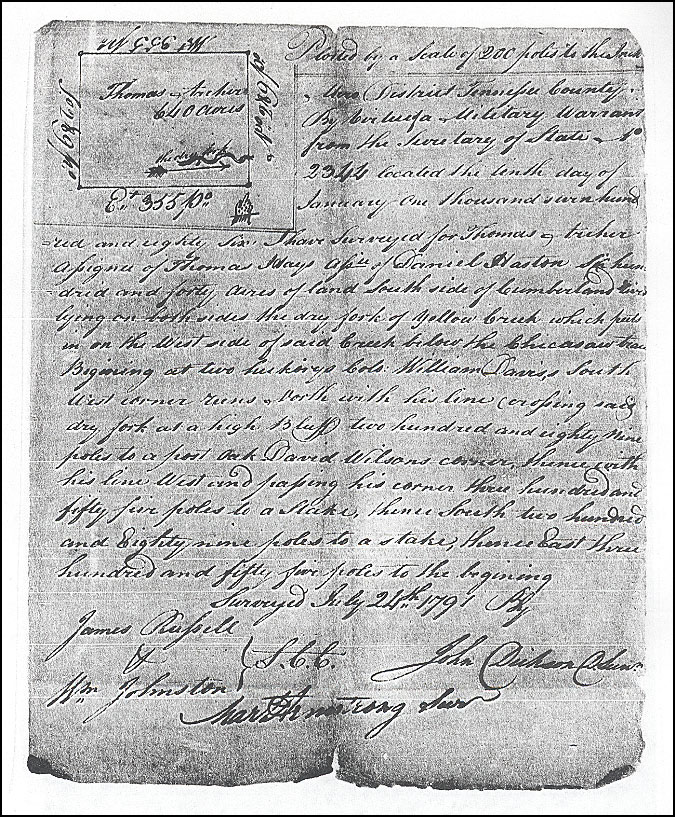 Wt 355 po
Ploted by a Scale of 200 poles to the Inch
Thomas Archer
640 acres
So 289 po
No 289 po
the dry fork
Et 355 po
Mero District Tennessee County
By Vertue of a Military Warrant
from the Secretary of State No
2344 located the tenth day of
January one thousand seven hund
red and eighty Six I have Surveyed for Thomas Archer
Assignee of Thomas Hays Assee of Daniel Haston Six hun
dred and forty acres of land South side of Cumberland River
lying on both sides the dry fork of Yellow Creek which puts
in on the West side of said Creek below the Chicasaw trace
Begining at two hickorys Colo: William Davis,s South
West corner runs North with his line crossing said
dry fork at a high Bluff two hundred and eighty nine
poles to a post oak David Wilsons corner, thence with
his line West and passing his corner three hundred and
fifty five poles to a Stake, thence South two hundred
and Eighty nine poles to a stake, thence East three
hundred and fifty five poles to the begining
Surveyed July 24th 1791 By
James Russell
&
Wm Johnston
S.C.C.
John Dickson D Surv
Mart Armstrong Surv